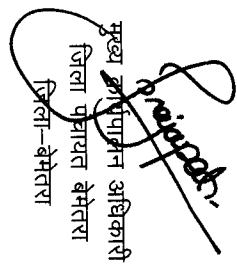 मुख्य कार्यपालन अधिकारी
जिला पंचायत बेमेतरा
जिला-बेमेतरा